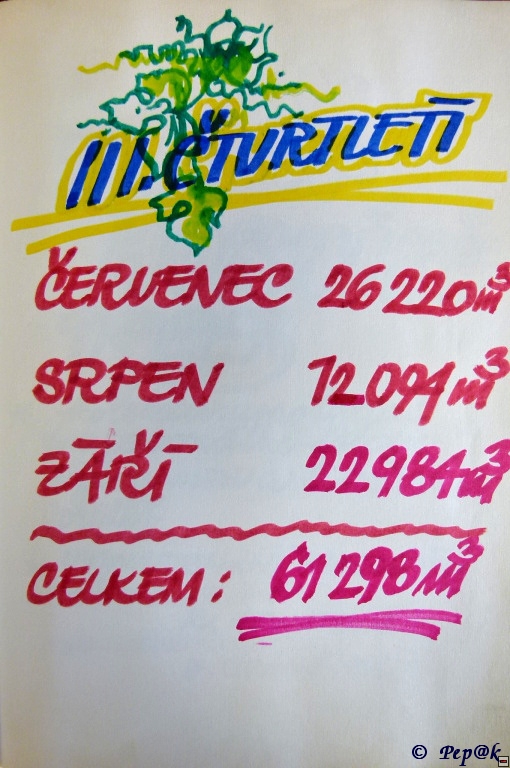 III. ČTVRTLETÍ
ČERVENEC 26 220 m³
SRPEN 12 094 m³
ZÁŘÍ 22 984 m³
CELKEM: 61 298 m³
© Pep@k